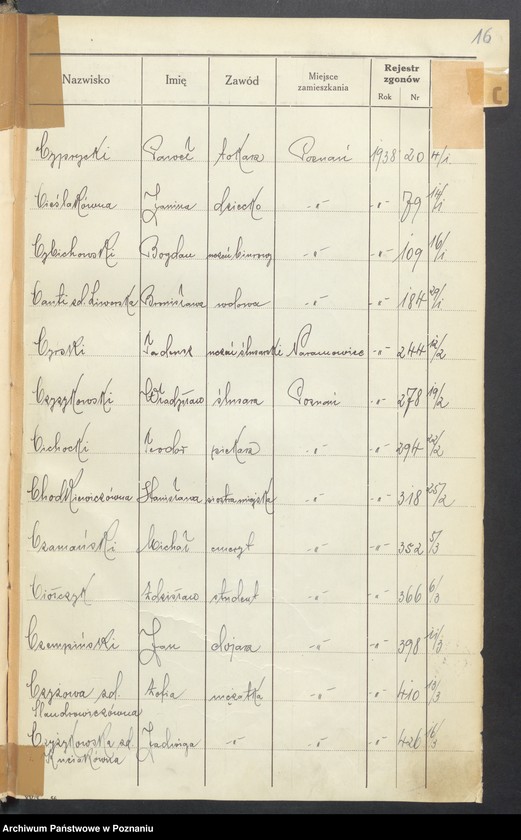 16
Nazwisko Imię Zawód Miejsce zamieszkania Rejestr zgonów Rok Nr
C
Czprycki Paweł tokarz Poznań 1938 20 4/1
Cieślakówna Janina dziecko -"- -"- 79 14/1
Czichowski Bogdan uczeń biurowy -"- -"- 109 16/1
zd. Liwerska Bronisława wdowa -"- -"- 184 29/1
Cyrski Tadeusz uczeń ślusarski Naramowice -"- 244 12/2
Czyżykowski Władysław ślusarz Poznań -"- 278 19/2
Cichocki Teodor piekarz -"- -"- 294 22/2
Chodkiewiczówna Stanisława siostra miejska -"- -"- 318 25/2
Czamański Michał emeryt -"- -"- 352 5/3
Ciórczyk Zdzisław student -"- -"- 366 6/3
Czempiński Jan dojarz -"- -"- 398 11/3
Czyżowa zd. Zofia mężatka -"- -"- 410 13/3
Czyżykowska zd. Jadwiga -"- -"- -"- 426 16/3
Archiwum Państwowe w Poznaniu